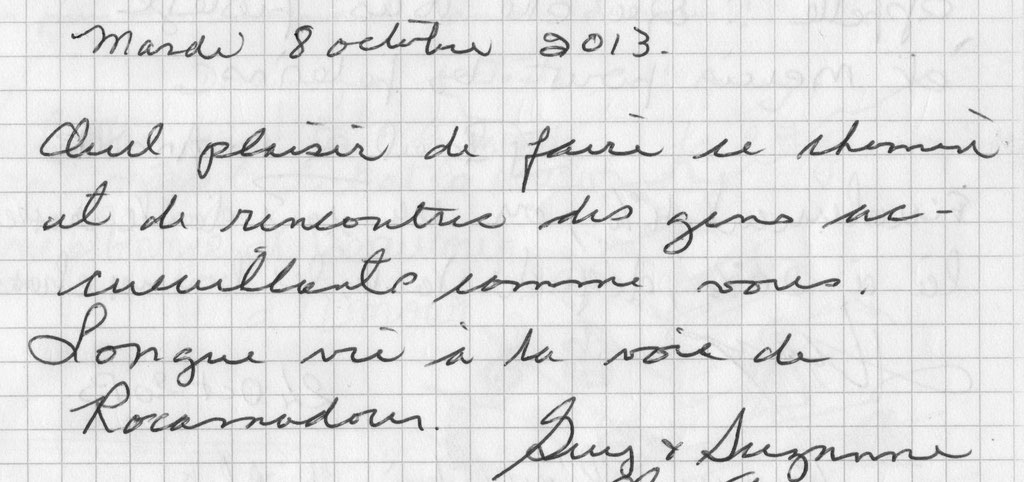 Mardi 8 octobre 2013.
Quel plaisir de faire ce chemin
et de rencontrer des gens ac-
cueillants comme vous.
Longue vie à la voie de
Rocamadour.
Guy & Suzanne